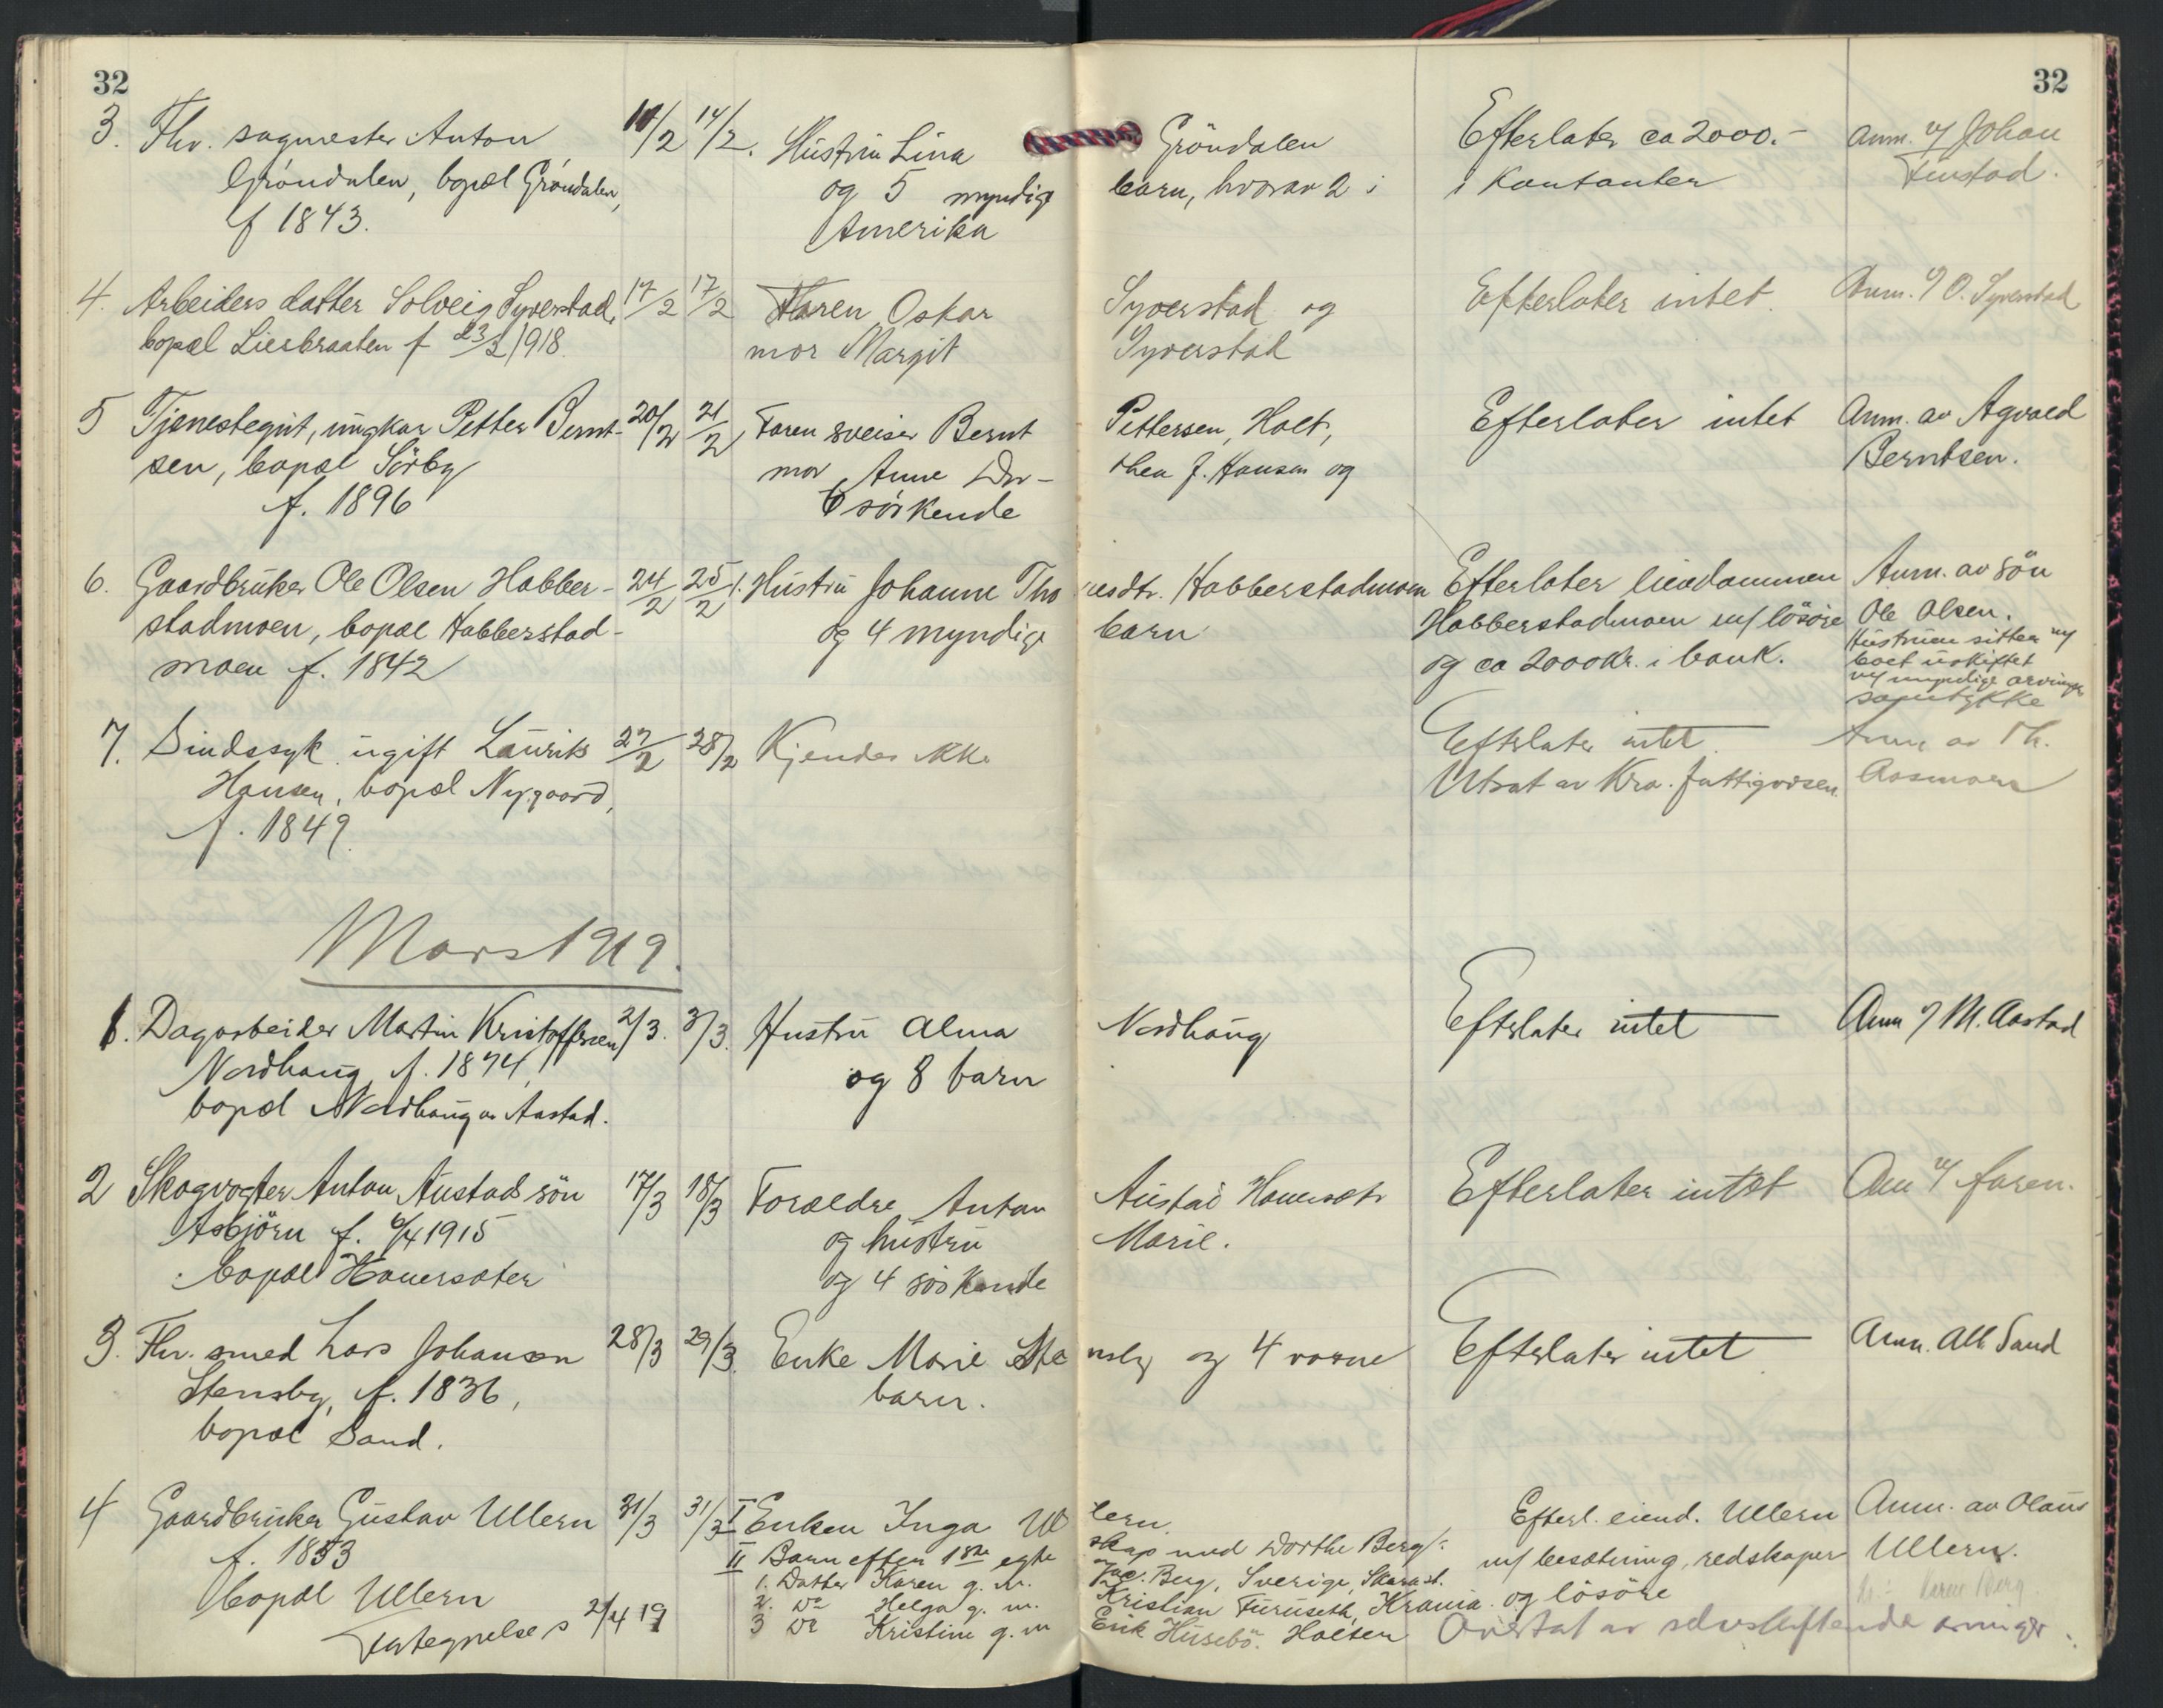 32
32
3. Fhv. sagmester Anton 10/2 14/2. Hustru Lina Gröndalen Efterlater ca 2000.- Anm. v/ Johan
Gröndalen, bopæl Gröndalen, og 5 myndige barn, hvorav 2 i i Kontanter Finstad.
f 1843. Amerika
4. Arbeiders datter Solveig Syverstad, 17/2 17/2 Faren Oskar Syverstad og Efterlater intet. Anm. v/ O. Syverstad
bopæl Liesbraaten f 23/2 1918. mor Margit Syverstad
5 Tjenestegut, ungkar Petter Bernt- 20/2 21/2 Faren sveiser Bernt Pettersen, Holt, Efterlater intet Anm. av Agvald
sen, bopæl Sörby mor Anne Dor- thea J. Hansen og Berntsen.
f. 1896 6 söskende
6. Gaardbruker Ole Olsen Habber- 24/2 25/2 1. Hustru Johanne Tho resdtr. Habberstadmoen Efterlater eiendommen Anm. av sön
stadmoen, bopæl Habberstad- og 4 myndige barn Habberstadmoen m/ lösöre Ole Olsen.
moen f. 1842 og ca 2000 kr. i bank. Hustruen sitter m/
boet uskiftet
m/ myndige arvinger
samtykke
7. Sindssyk ugift Lauriks 27/2 28/2 Kjendes ikke Efterlater intet. Anm av Th.
Hansen, bopæl Nygaard, Utsat av Kra. fattigvæsen. Aasmoen
f. 1849.
Mars 1919.
1. Dagarbeider Martin Kristoffersen 2/3. 3/3. Hustru Alma Nordhaug Efterlater intet Anm v/ M. Aastad
Nordhaug, f. 1874, og 8 barn
bopæl Nordhaug av Aastad.
2 Skogvogter Anton Austads sön 17/3 18/3 Forældre Anton Austad Hauersæter Efterlater intet Anm v/ faren.
Asbjörn f. 6/4 1915 og hustru Marie.
bopæl Hauersæter og 4 söskende
3. Fhv. smed Lars Johansen 28/3 29/3. Enke Marie Ste nsby og 4 voxne Efterlater intet Anm. Alb. Sand
Stensby, f. 1836, barn.
bopæl Sand.
4 Gaardbruker Gustav Ullern 31/3 31/3 I Enken Inga Ul lern. Efterl. eiend. Ullern Anm. av Olaus
f. 1853 II Barn efter 1ste egte skap med Dorthe Berg: m/ besætning, redskaper Ullern.
bopæl Ullern 1. Datter Karen g. m. Jac. Berg, Sverige, Skarast. og lösöre
2. Do Helga g. m. Kristian Furuseth, Krania.
Fortegnelse s 2/4 19 3 Do Kristine g. m Erik Husebö. Holter Overtat av selvskiftende arvinger.